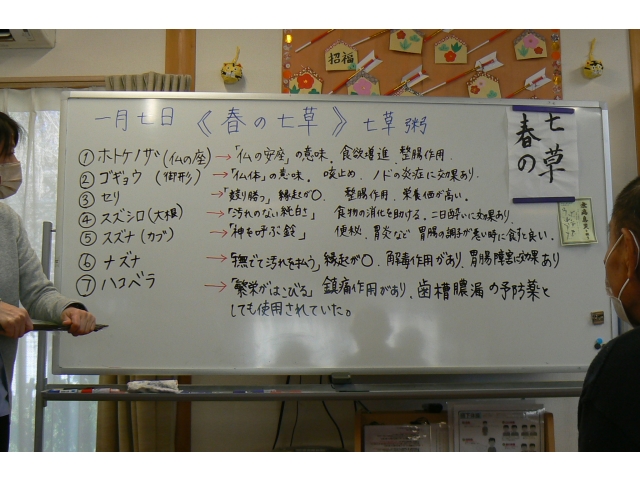 招福
一月七日 《春の七草》 七草粥
七草
春の
① ホトケノザ(仏の座) →「仏の安座」の意味. 食欲増進 整腸作用.
② ゴギョウ (御形) →「仏体」の意味. 咳止め. ノドの炎症に効果あり.
③ セリ →「競り勝つ」縁起が〇. 整腸作用. 栄養価が高い.
④ スズシロ(大根) →「汚れのない純白さ」 食物の消化を助ける. 二日酔いに効果あり.
⑤ スズナ(カブ) →「神を呼ぶ鈴」 便秘. 胃炎など 胃腸の調子が悪い時に食すと良い.
⑥ ナズナ →「撫でて汚れを払う」縁起が〇. 解毒作用があり. 胃腸障害に効果あり
⑦ ハコベラ →「繁栄がはこびる」鎮痛作用があり. 歯槽膿漏の予防薬と
しても使用されていた。